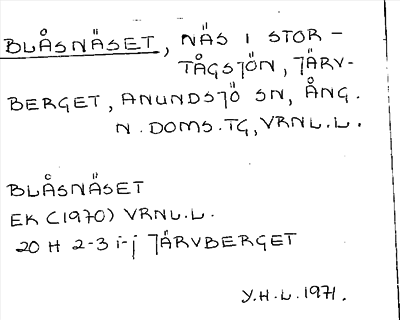 BLÅSNÄSET, NÄS I STOR-
TÅGSJÖN, JÄRV-
BERGET, ANUNDSJÖ SN, ÅNG.
N. DOMS. TG, VRNL.L.
BLÅSNÄSET
EK (1970) VRNL.L.
20 H 2-3 i-j JÄRVBERGET
Y.H.L. 1971.